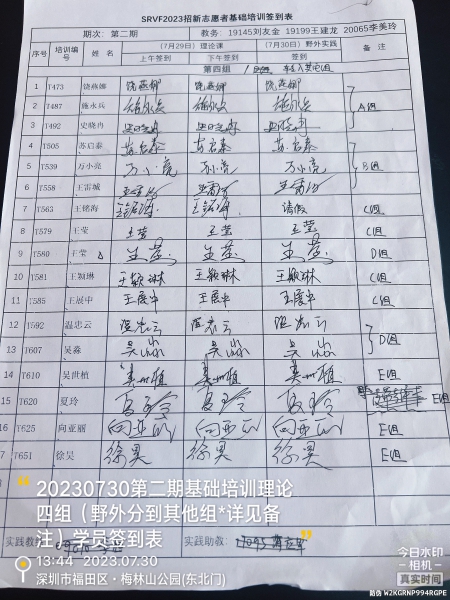 SRVF2023招新志愿者基础培训签到表
期次：第二期 教务：19145刘友金 19199王建龙 20065李美玲
序号 培训编号 姓名 （7月29日）理论课 （7月30日）野外实践 备注
上午签到 下午签到 签到
第四组
1 T473 饶燕娜 饶燕娜 饶燕娜 饶燕娜
2 T487 施永兵 施永兵 施永兵 施永兵 A组
3 T492 史晓冉 史晓冉 史晓冉 史晓冉
4 T505 苏启泰 苏启泰 苏启泰 苏启泰
5 T539 万小亮 万小亮 万小亮 万小亮 B组
6 T558 王雷城
7 T563 王铭海 王铭海 王铭海 请假 C组
8 T579 王莹 王莹 王莹 王莹 C组
9 T580 王莹 王莹 王莹 王莹 D组
10 T581 王颖琳 王颖琳 王颖琳 王颖琳 C组
11 T585 王展中 王展中 王展中 王展中 C组
12 T592 温忠云 温忠云 温忠云 温忠云
D组
13 T607 吴淼 吴淼 吴淼 吴淼
14 T610 吴世植 E组
15 T620 夏玲 夏玲 夏玲 夏玲 E组
16 T625 向亚丽 向亚丽 向亚丽 向亚丽 E组
7 T651 徐昊 徐昊 徐昊 徐昊 E组
20230730第二期基础培训理论
四组（野外分到其他组*详见备
注）学员签到表
实践教 实践助教：
13:44 2023.07.30
深圳市福田区·梅林山公园(东北门)
今日水印
相机
真实时间
防伪 W2KGRNP994RGPE